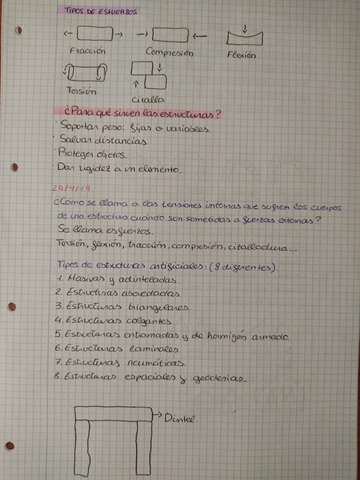 TIPOS DE ESFUERZOS
Tracción
Compresión
Flexión
Torsión
Cizalla
¿Para qué sirven las estructuras?
- Soportar peso: fijas o variables.
- Salvar distancias.
- Proteger objetos.
- Dar rigidez a un elemento.
24/4/19
¿Cómo se llama a las tensiones internas que sufren los cuerpos
de una estructura cuando son sometidas a fuerzas externas?
Se llama esfuerzos.
Torsión, flexión, tracción, compresión, cizalladura...
Tipos de estructuras artificiales: (8 diferentes)
1. Masivas y adinteladas.
2. Estructuras abovedadas
3. Estructuras triangulares.
4. Estructuras colgantes.
5. Estructuras entramadas y de hormigón armado.
6. Estructuras laminales
7. Estructuras neumáticas.
8. Estructuras espaciales y geodésicas.
Dintel